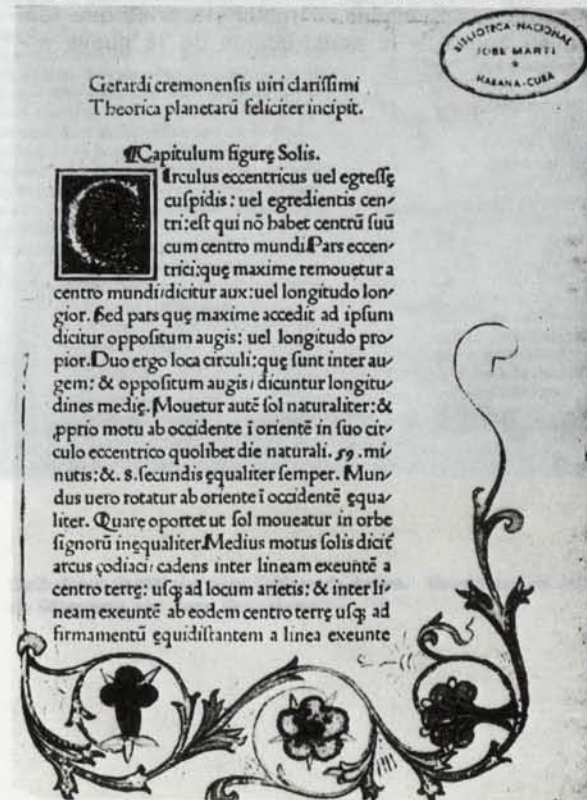 BIBLIOTECA-NACIONAL
JOSE MARTI
HABANA-CUBA
Gerardi cremonensis uiri clarissimi
Theorica planetarū feliciter incipit.
¶Capitulum figurę Solis.
CIrculus eccentricus uel egressę
cuspidis: uel egredientis cen-
tri:est qui nō habet centrū suū
cum centro mundi.Pars eccen-
trici:quę maxime remouetur a
centro mundi/dicitur aux:uel longitudo lon-
gior. Sed pars quę maxime accedit ad ipsum
dicitur oppositum augis: uel longitudo pro
pior.Duo ergo loca circuli:quę sunt inter au-
gem: & oppositum augis/ dicuntur longitu-
dines medię. Mouetur autē sol naturaliter:&
ꝓprio motu ab occidente ī orientē in suo cir-
culo eccentrico quolibet die naturali. 59. mi-
nutis:&. 8.secundis ęqualiter semper. Mun-
dus uero rotatur ab oriente ī occidentē ęqua-
liter. Quare oportet ut sol moueatur in orbe
signorū inęqualiter.Medius motus solis dicit̄
arcus çodiaci/ cadens inter lineam exeuntē a
centro terrę: usꝗ ad locum arietis: & inter li-
neam exeuntē ab eodem centro terrę usꝗ ad
firmamentū ęquidistantem a linea exeunte